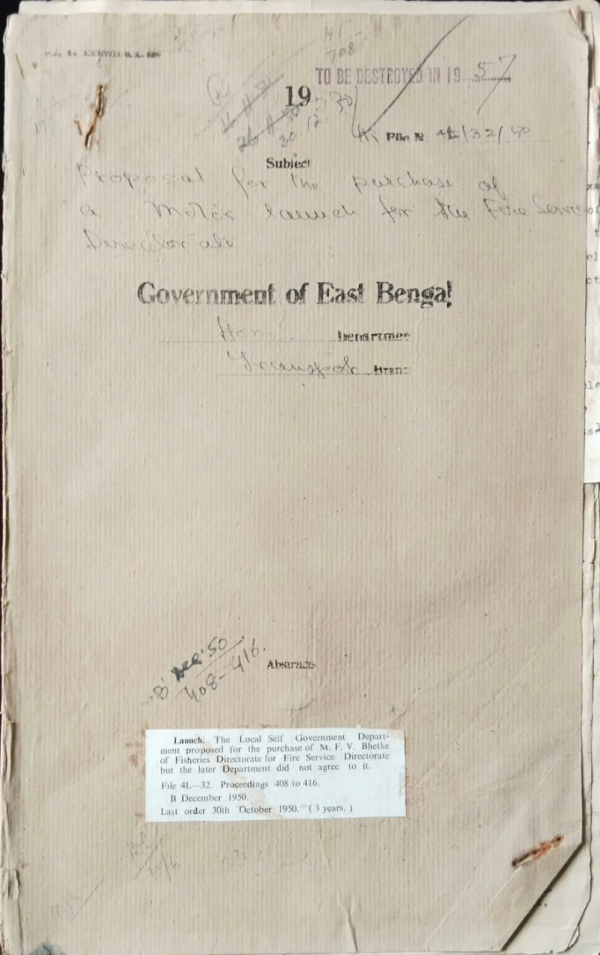 TO BE DESTROYED IN 1957
19
30.12.50
File N 4L/32/50
Subject
Proposal for the purchase of
a Motor launch for the Fire Service
Directorate
Government of East Bengal
Home Departmen
Transport Branc
'B' Dec. 50
408-416.
Abstracts
Launch. The Local Self Government Depart-
ment proposed for the purchase of M. F. V. Bhetke
of Fisheries Directorate for Fire Service Directorate
but the later Department did not agree to it.
File 4L—32. Proceedings 408 to 416.
B December 1950.
Last order 30th October 1950. (3 years.)